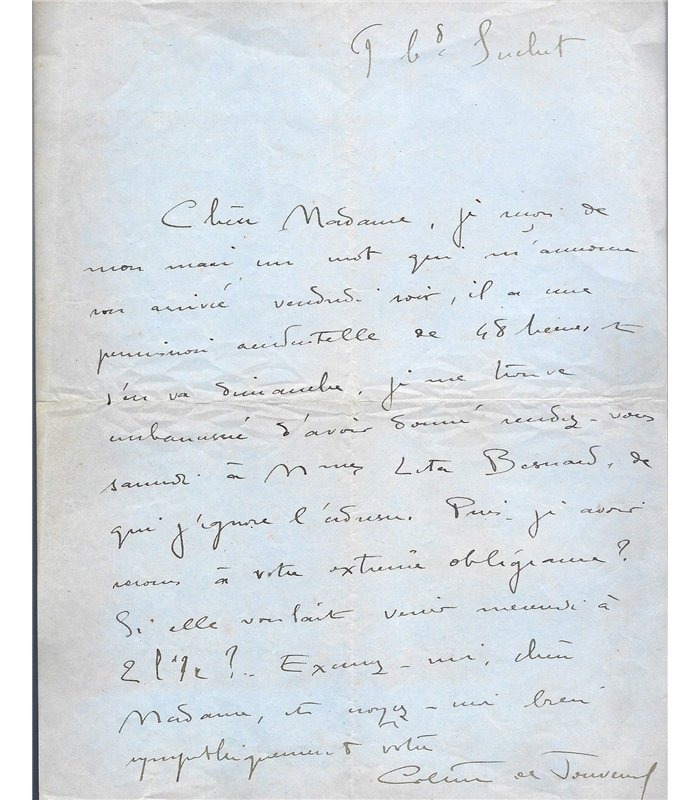 9 bd Suchet
Chère Madame, je reçois de
mon mari un mot qui m'annonce
son arrivée vendredi soir, il a une
permission de 48 heures et
s'en va dimanche, je me trouve
embarrassée d'avoir donné rendez-vous
samedi à Mme Lita Besnard, de
qui j'ignore l'adresse. Puis-je avoir
recours à votre extrême obligeance ?
Si elle voulait venir mercredi à
2 h 1/2 ?.. Excusez-moi, chère
Madame, et croyez-moi bien
sympathiquement vôtre
Colette de Jouvenel